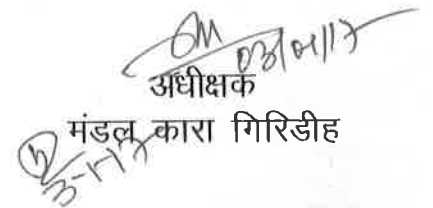 03/01/17
अधीक्षक
मंडल कारा गिरिडीह
3-1-17